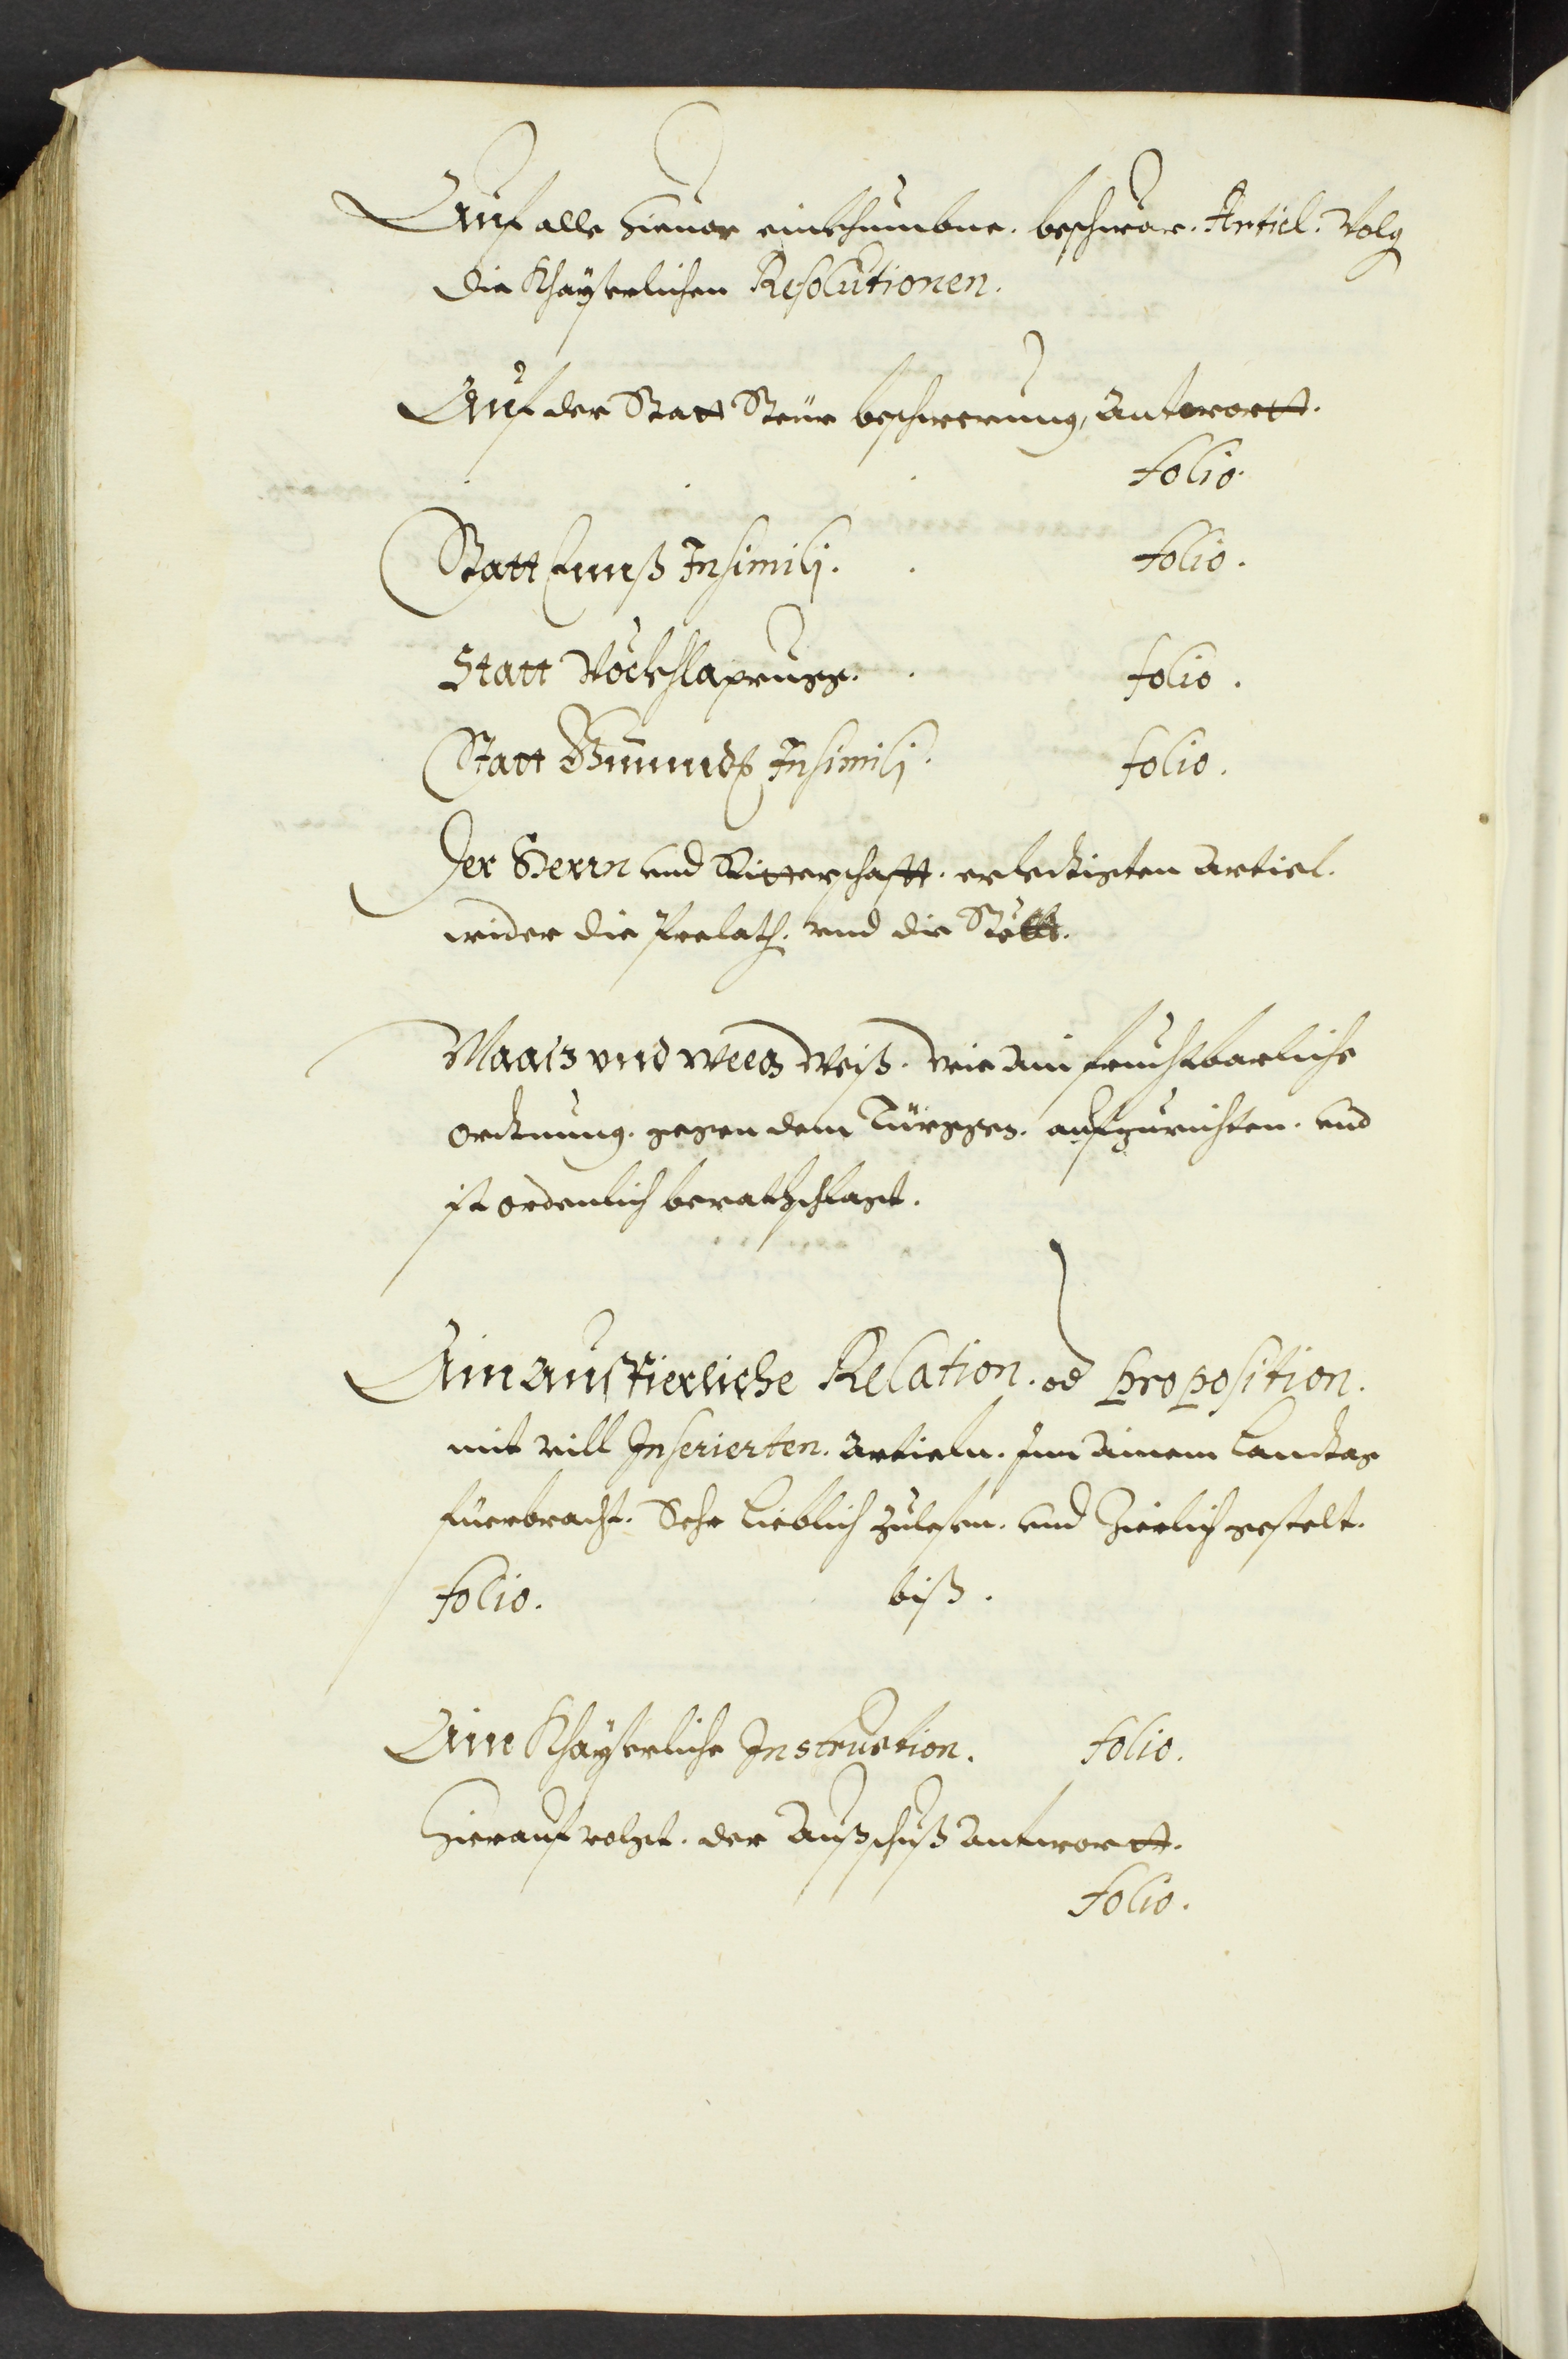 Auf alle hieuor einkhumbne. beschwär. Articl. Volg
die Khayserlichen Resolutionen.
Auf der Statt Steür beschwerung, Antwortt.
folio.
Statt Ennß Insimili. folio.
Statt Vöckhlaprugg. folio.
Statt Gmundß Insimili. folio.
Der Herrn und Ritterschafft. erledigten Articl.
wider die Prelath. und die Stött.
Maas und weeg Weiß. Wie ain fruchtbarliche
Ordnung. gegen dem Türggen. aufzurichten. und
ist ordenlich berathschlagt.
Ain Ausfierliche Relation. od Proposition.
mit vill Inserierten. Articln. Inn Ainem Landtag
füerbracht. Sehr Lieblich zulesen. und Zierlich gestelt.
folio. biß.
Ain Khayserliche Instruction. folio.
Hierauf volgt. der Außschuß Antwortt.
folio.